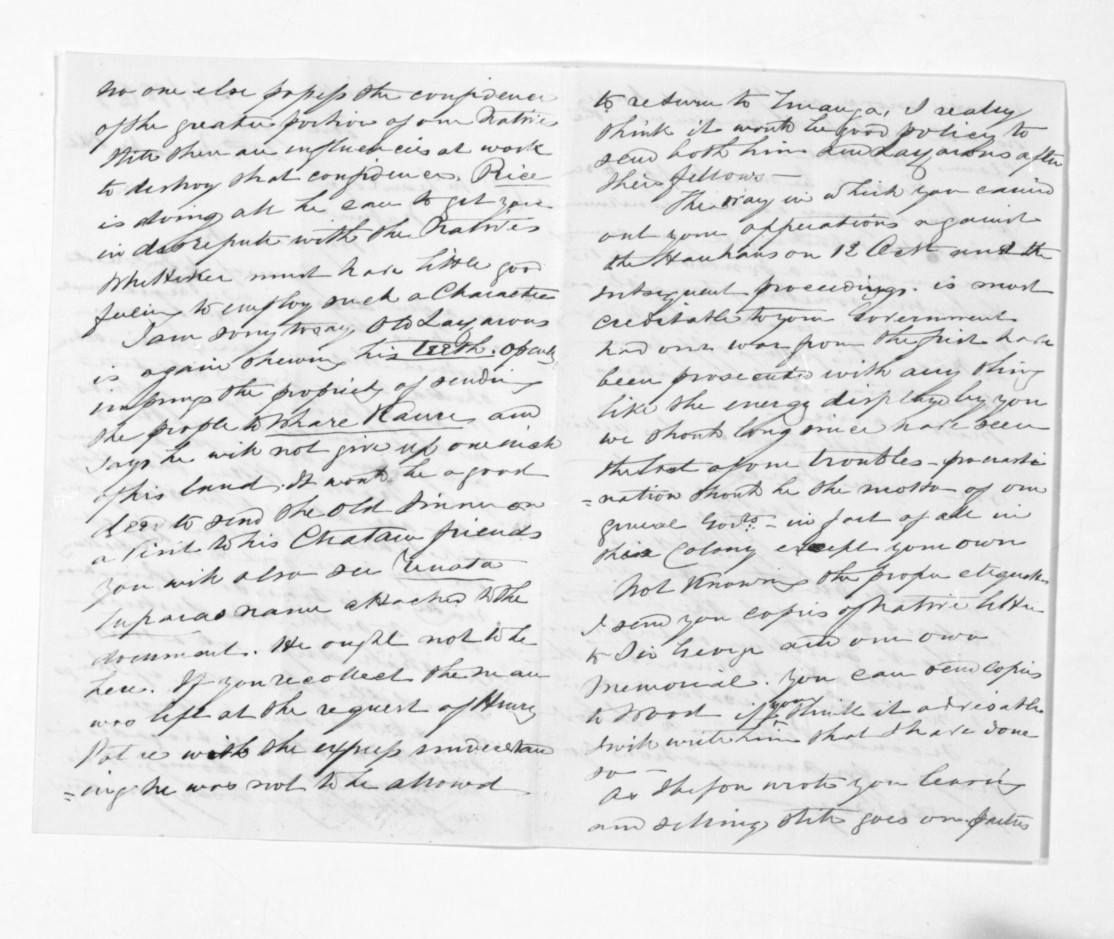 no one else possess the confidence
of the greater portion of our Natives
Still there are influencies at work
to destroy that confidence. Rice
is doing all he can to get you
in disrepute with the Natives
Whittaker must have little good
feeling to employ such a Character
I am sorry to say Old Lazarous
is again shewing his teeth. openly
impungs the propriety of sending
the people to Whare Kaure and
says he will not give up one inch
of his land. It would be a good
to send the old sinner on
a visit to his Chatam friends
You will also see Renata
Tuparas name attached to the
document. He ought not to be
here. If you recollect the man
was left at the request of Henry
Potae with the express understand
=ing he was not to be allowed
to return to Turanga, I really
think it would be good policy to
send both him and Lazarous after
their fellows —
The way in which you carried
out your opperations against
the Hauhaus on 12 Octr and the
subsequent proceedings. is most
creditable to your Government
had our war from the first have
been prosecuted with any thing
like the energy displayed by you
we should long since have seen
the last of our troubles — procrasti
=nation should be the motto of our
general Govt. — in fact of all in
this Colony except your own
Not knowing the proper etiquette
I send you copies of Native letter
to Sir George and our own
Memorial. You can send copies
to Wood if you think it advisable
I will write him that I have done
so —
As I before wrote you leasing
and selling still goes on. parties